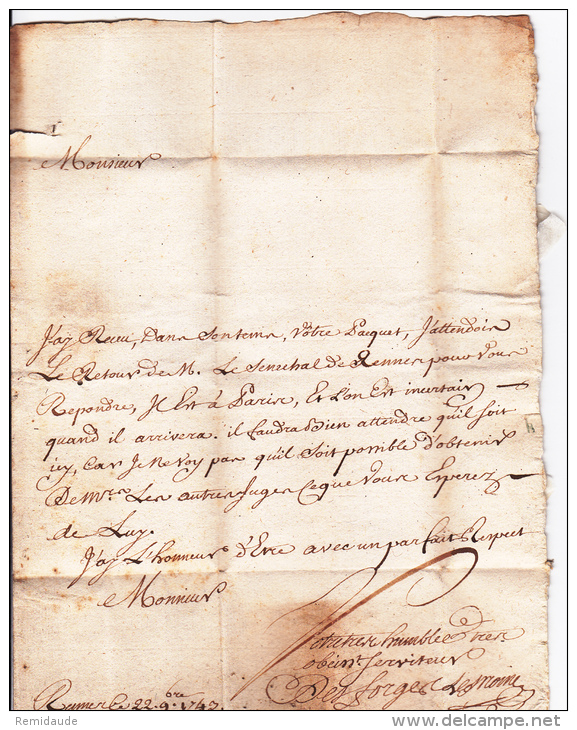 Monsieur
J'ay Receu, Dans Son tems, Vôtre Pacquet, J'attendois
Le Retour de M. Le Senechal de Rennes pour Vous
Repondre, Il Est à Paris, Et L'on Est incertain
quand il arrivera. il faudra Bien attendre qu'il soit
icy, Car Je Ne Voy pas qu'il Soit possible d'obtenir
De Mrs Les autres Juges Ce que Vous Esperez
de Luy.
J'ay L'honneur d'Etre avec un parfait Respect
Monsieur
Votre tres humble et tres
obeist. Serviteur
Des forges Lemoine
Rennes le 22. 9.bre 1747.
Remidaude
delcampe.net